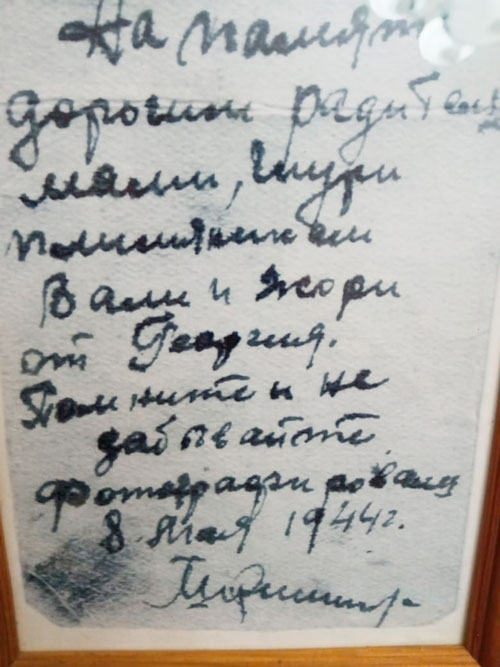 На память
дорогим радителям
мами, Шури
племяникам
Вали и Жори
от Георгия.
Помните и не
забывайте
фотографировался
8. Мая 1944 г.